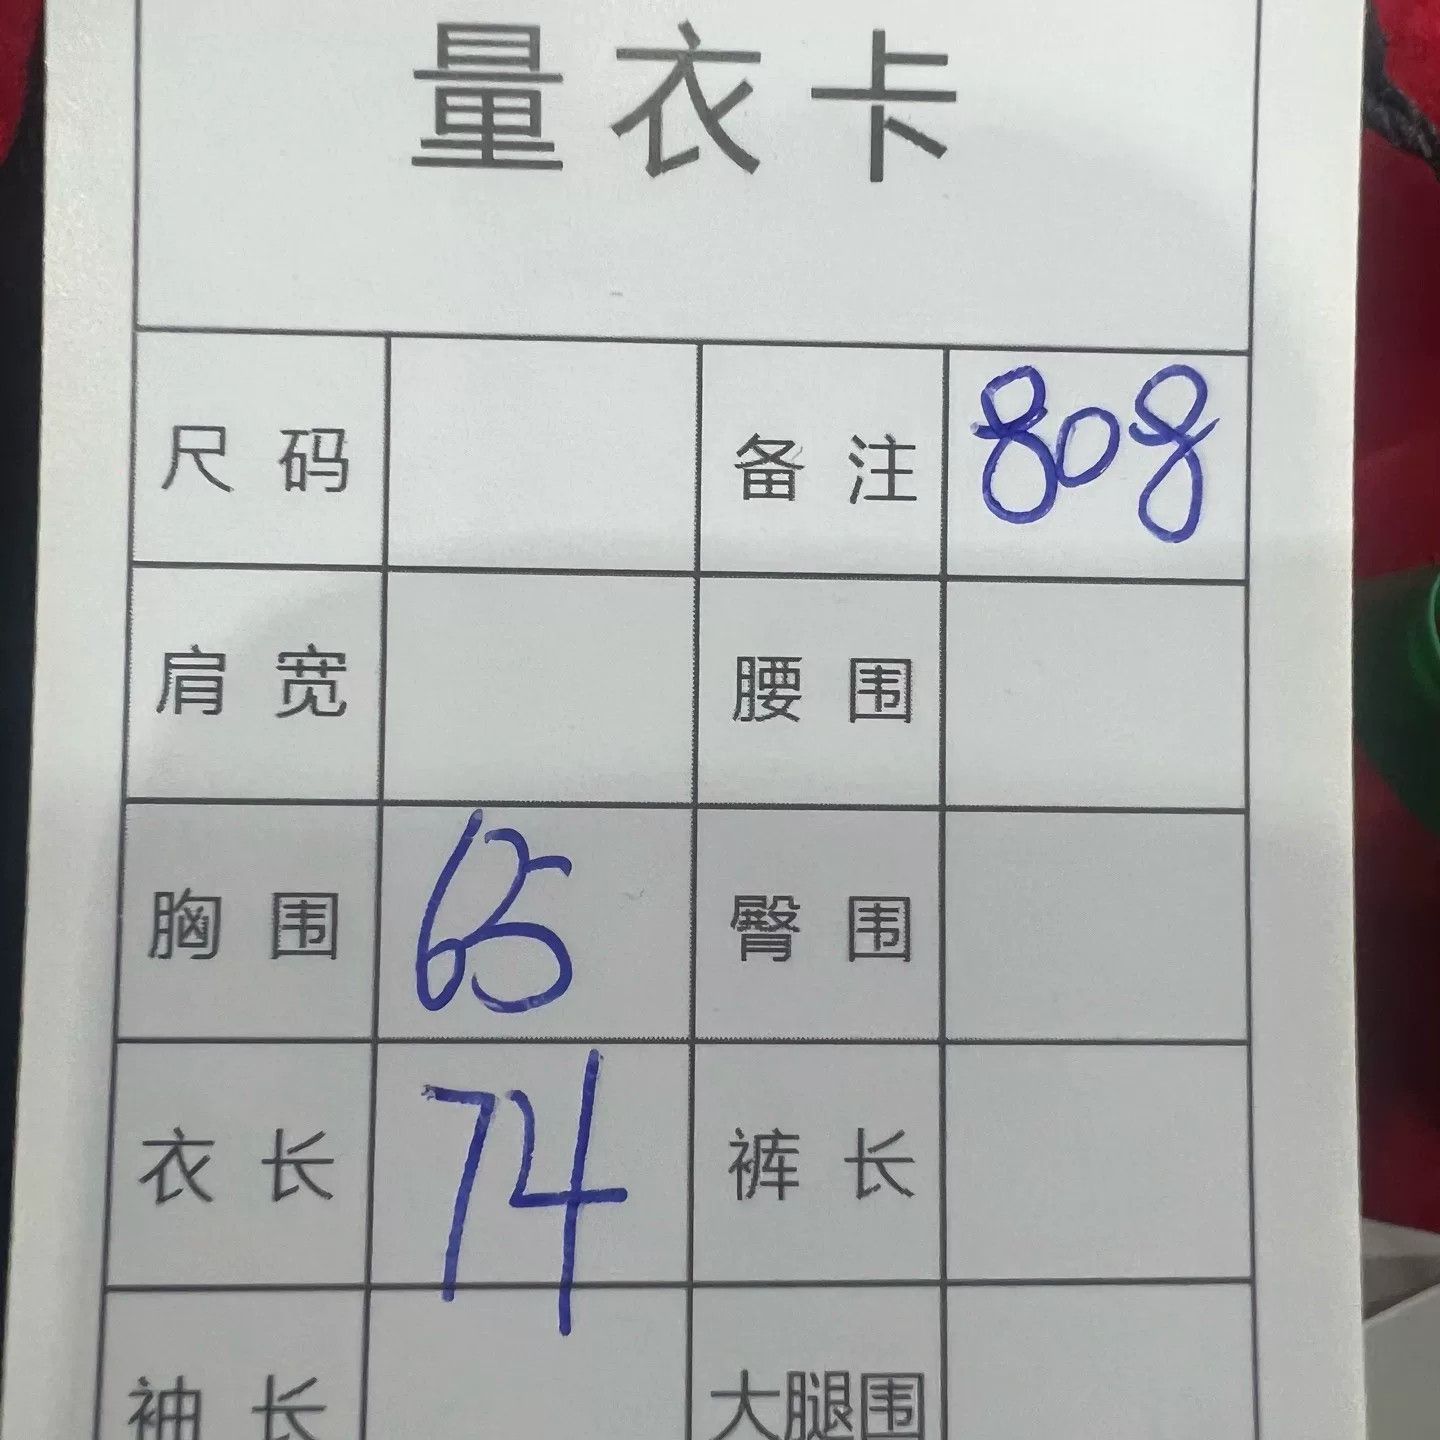 量衣卡
尺码 备注 808
肩宽 腰围
胸围 65 臀围
衣长 74 裤长
袖长 大腿围